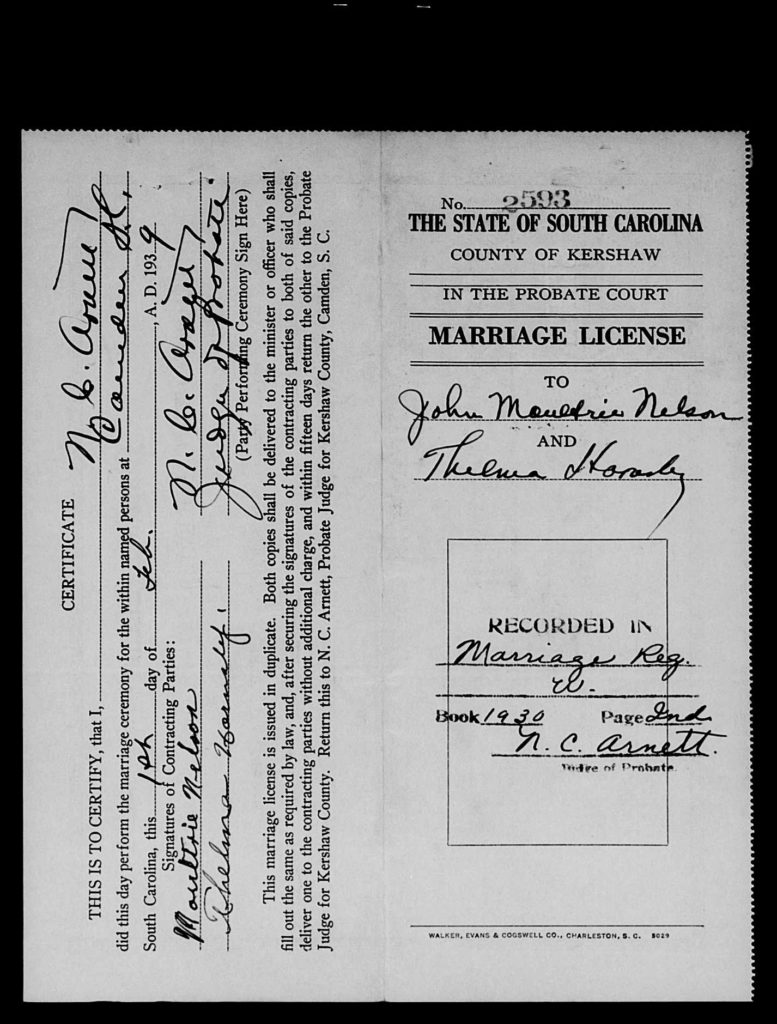 CERTIFICATE
THIS IS TO CERTIFY, that I, N. C. Arnett
did this day perform the marriage ceremony for the within named persons at Camden S.C.
South Carolina, this 1st day of Feb. , A. D. 1939
Signatures of Contracting Parties:
Moultrie Nelson N. C. Arnett
Thelma Judge of Probate.
(Party Performing Ceremony Sign Here)
This marriage license is issued in duplicate. Both copies shall be delivered to the minister or officer who shall
fill out the same as required by law, and, after securing the signatures of the contracting parties to both of said copies,
deliver one to the contracting parties without additional charge, and within fifteen days return the other to the Probate
Judge for Kershaw County. Return this to N. C. Arnett, Probate Judge for Kershaw County, Camden, S. C.
No. 2593
THE STATE OF SOUTH CAROLINA
COUNTY OF KERSHAW
IN THE PROBATE COURT
MARRIAGE LICENSE
TO
John Moultrie Nelson
AND
Thelma
RECORDED IN
Marriage Reg.
W.
Book 1930 Page Ind
N. C. Arnett.
Judge of Probate
WALKER, EVANS & COGSWELL CO., CHARLESTON, S. C. 5029